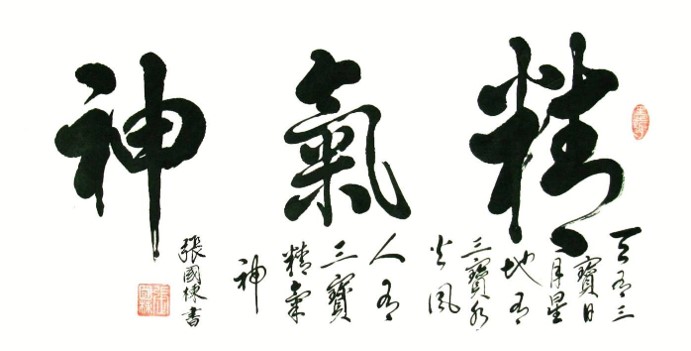 精氣神
天有三
寶日
月星
地有
三寶水
火風
人有
三寶
精氣
神
張國棟書